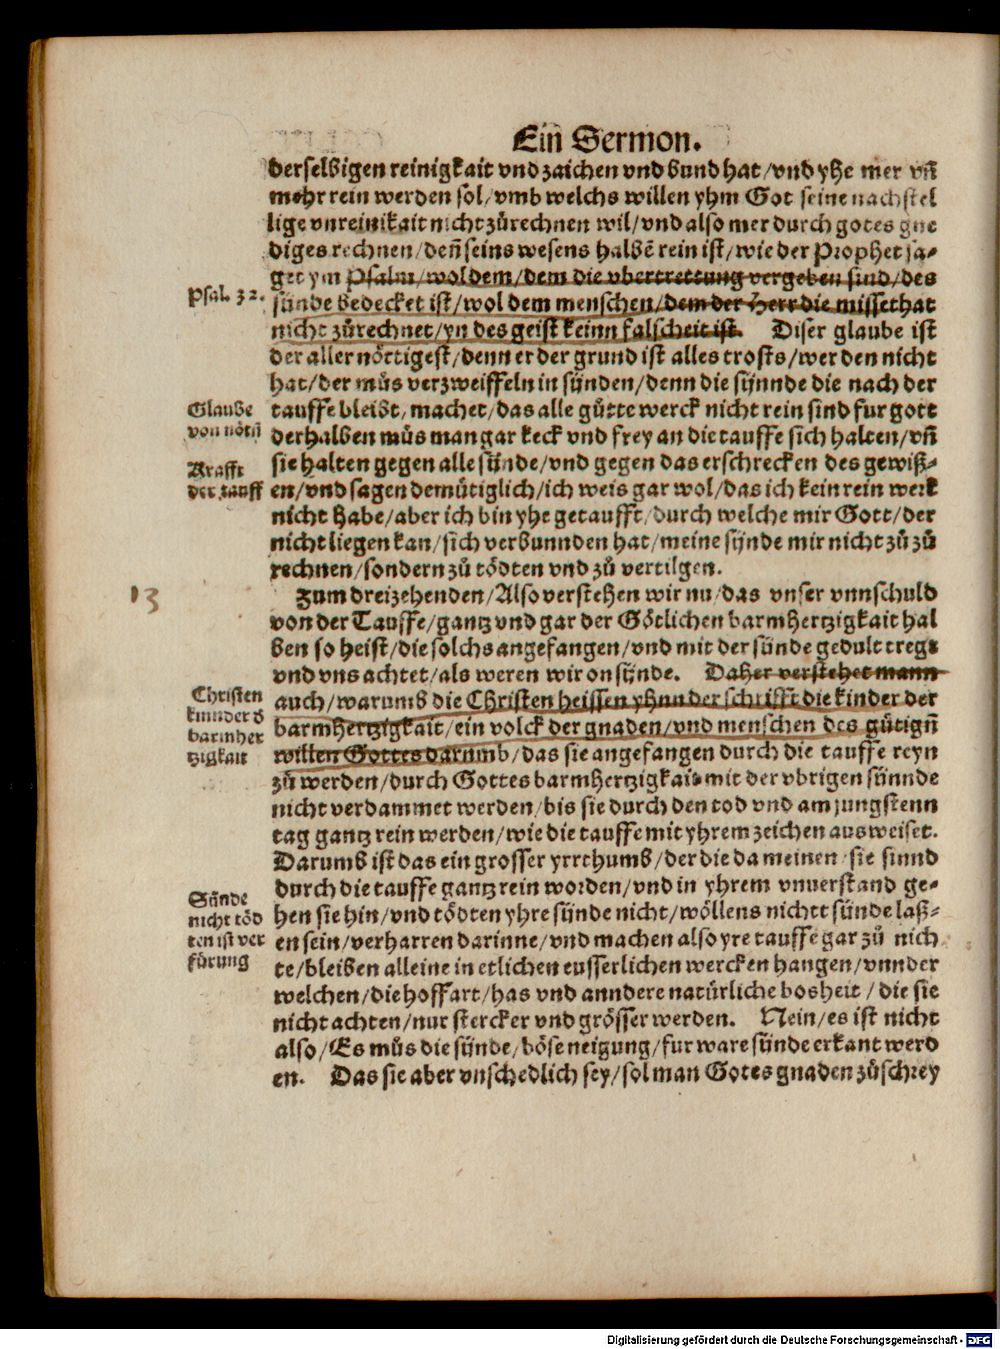 Ein Sermon.
derselbigen reinigkait vnd zaichen vnd bund hat/vnd yhe mer vñ
mehr rein werden sol/vmb welchs willen yhm Got seine nachstel
lige vnreinikait nicht zůrechnen wil/vnd also mer durch gotes gne
diges rechnen/deñ seins wesens halbē rein ist/wie der Prophet sa⸗
get ym Psalm/wol dem/dem die vbertrettung vergeben sind/des
Psal. 32.
sünde bedecket ist/wol dem menschen/dem der Herr die missethat
nicht zůrechnet/yn des geist keinn falscheit ist. Diser glaube ist
der aller nöttigest/denn er der grund ist alles trosts/wer den nicht
hat/der můs verzweiffeln in sünden/denn die sünnde die nach der
Glaube
von nötñ
tauffe bleibt, machet/das alle gůtte werck nicht rein sind fur gott
derhalben můs man gar keck vnd frey an die tauffe sich halten/vñ
Krafft
der tauff
sie halten gegen alle sünde/vnd gegen das erschrecken des gewiß⸗
en/vnd sagen demütiglich/ich weis gar wol/das ich kein rein werk
nicht habe/aber ich bin yhe getaufft/durch welche mir Gott/der
nicht liegen kan/sich verbunnden hat/meine sünde mir nicht zů zů
rechnen/sondern zů tödten vnd zů vertilgen.
13
Zum dreizehenden/Also verstehen wir nu/das vnser vnnschuld
von der Tauffe/gantz vnd gar der Götlichen barmhertzigkait hal
ben so heist/die solchs angefangen/vnd mit der sünde gedult tregt
vnd vns achtet/als weren wir on sünde. Daher verstehet mann
Christen
kinnder d
barmher
tzigkait
auch/warumb die Christen heissen yhnn der schrifft die kinder der
barmhertzigkait/ein volck der gnaden/vnd menschen des gütigñ
willen Gottes darumb/das sie angefangen durch die tauffe reyn
zů werden/durch Gottes barmhertzigkait mit der vbrigen sünnde
nicht verdammet werden/bis sie durch den tod vnd am jungstenn
tag gantz rein werden/wie die tauffe mit yhrem zeichen ausweiset.
Darumb ist das ein grosser yrrthumb/der die da meinen/sie sinnd
durch die tauffe gantz rein worden/vnd in yhrem vnuerstand ge⸗
Sünde
nicht töd
ten ist ver
fürung
hen sie hin/vnd tödten yhre sünde nicht/wöllens nichtt sünde laß⸗
en sein/verharren darinne/vnd machen also yre tauffe gar zů nich
te/bleiben alleine in etlichen eusserlichen wercken hangen/vnnder
welchen/die hoffart/has vnd anndere natürliche bosheit / die sie
nicht achten/nur stercker vnd grösser werden. Nein/es ist nicht
also/Es můs die sünde/böse neigung/fur ware sünde erkant werd
en. Das sie aber vnschedlich sey/sol man Gotes gnaden zůschrey
Digitalisierung gefördert durch die Deutsche Forschungsgemeinschaft - DFG